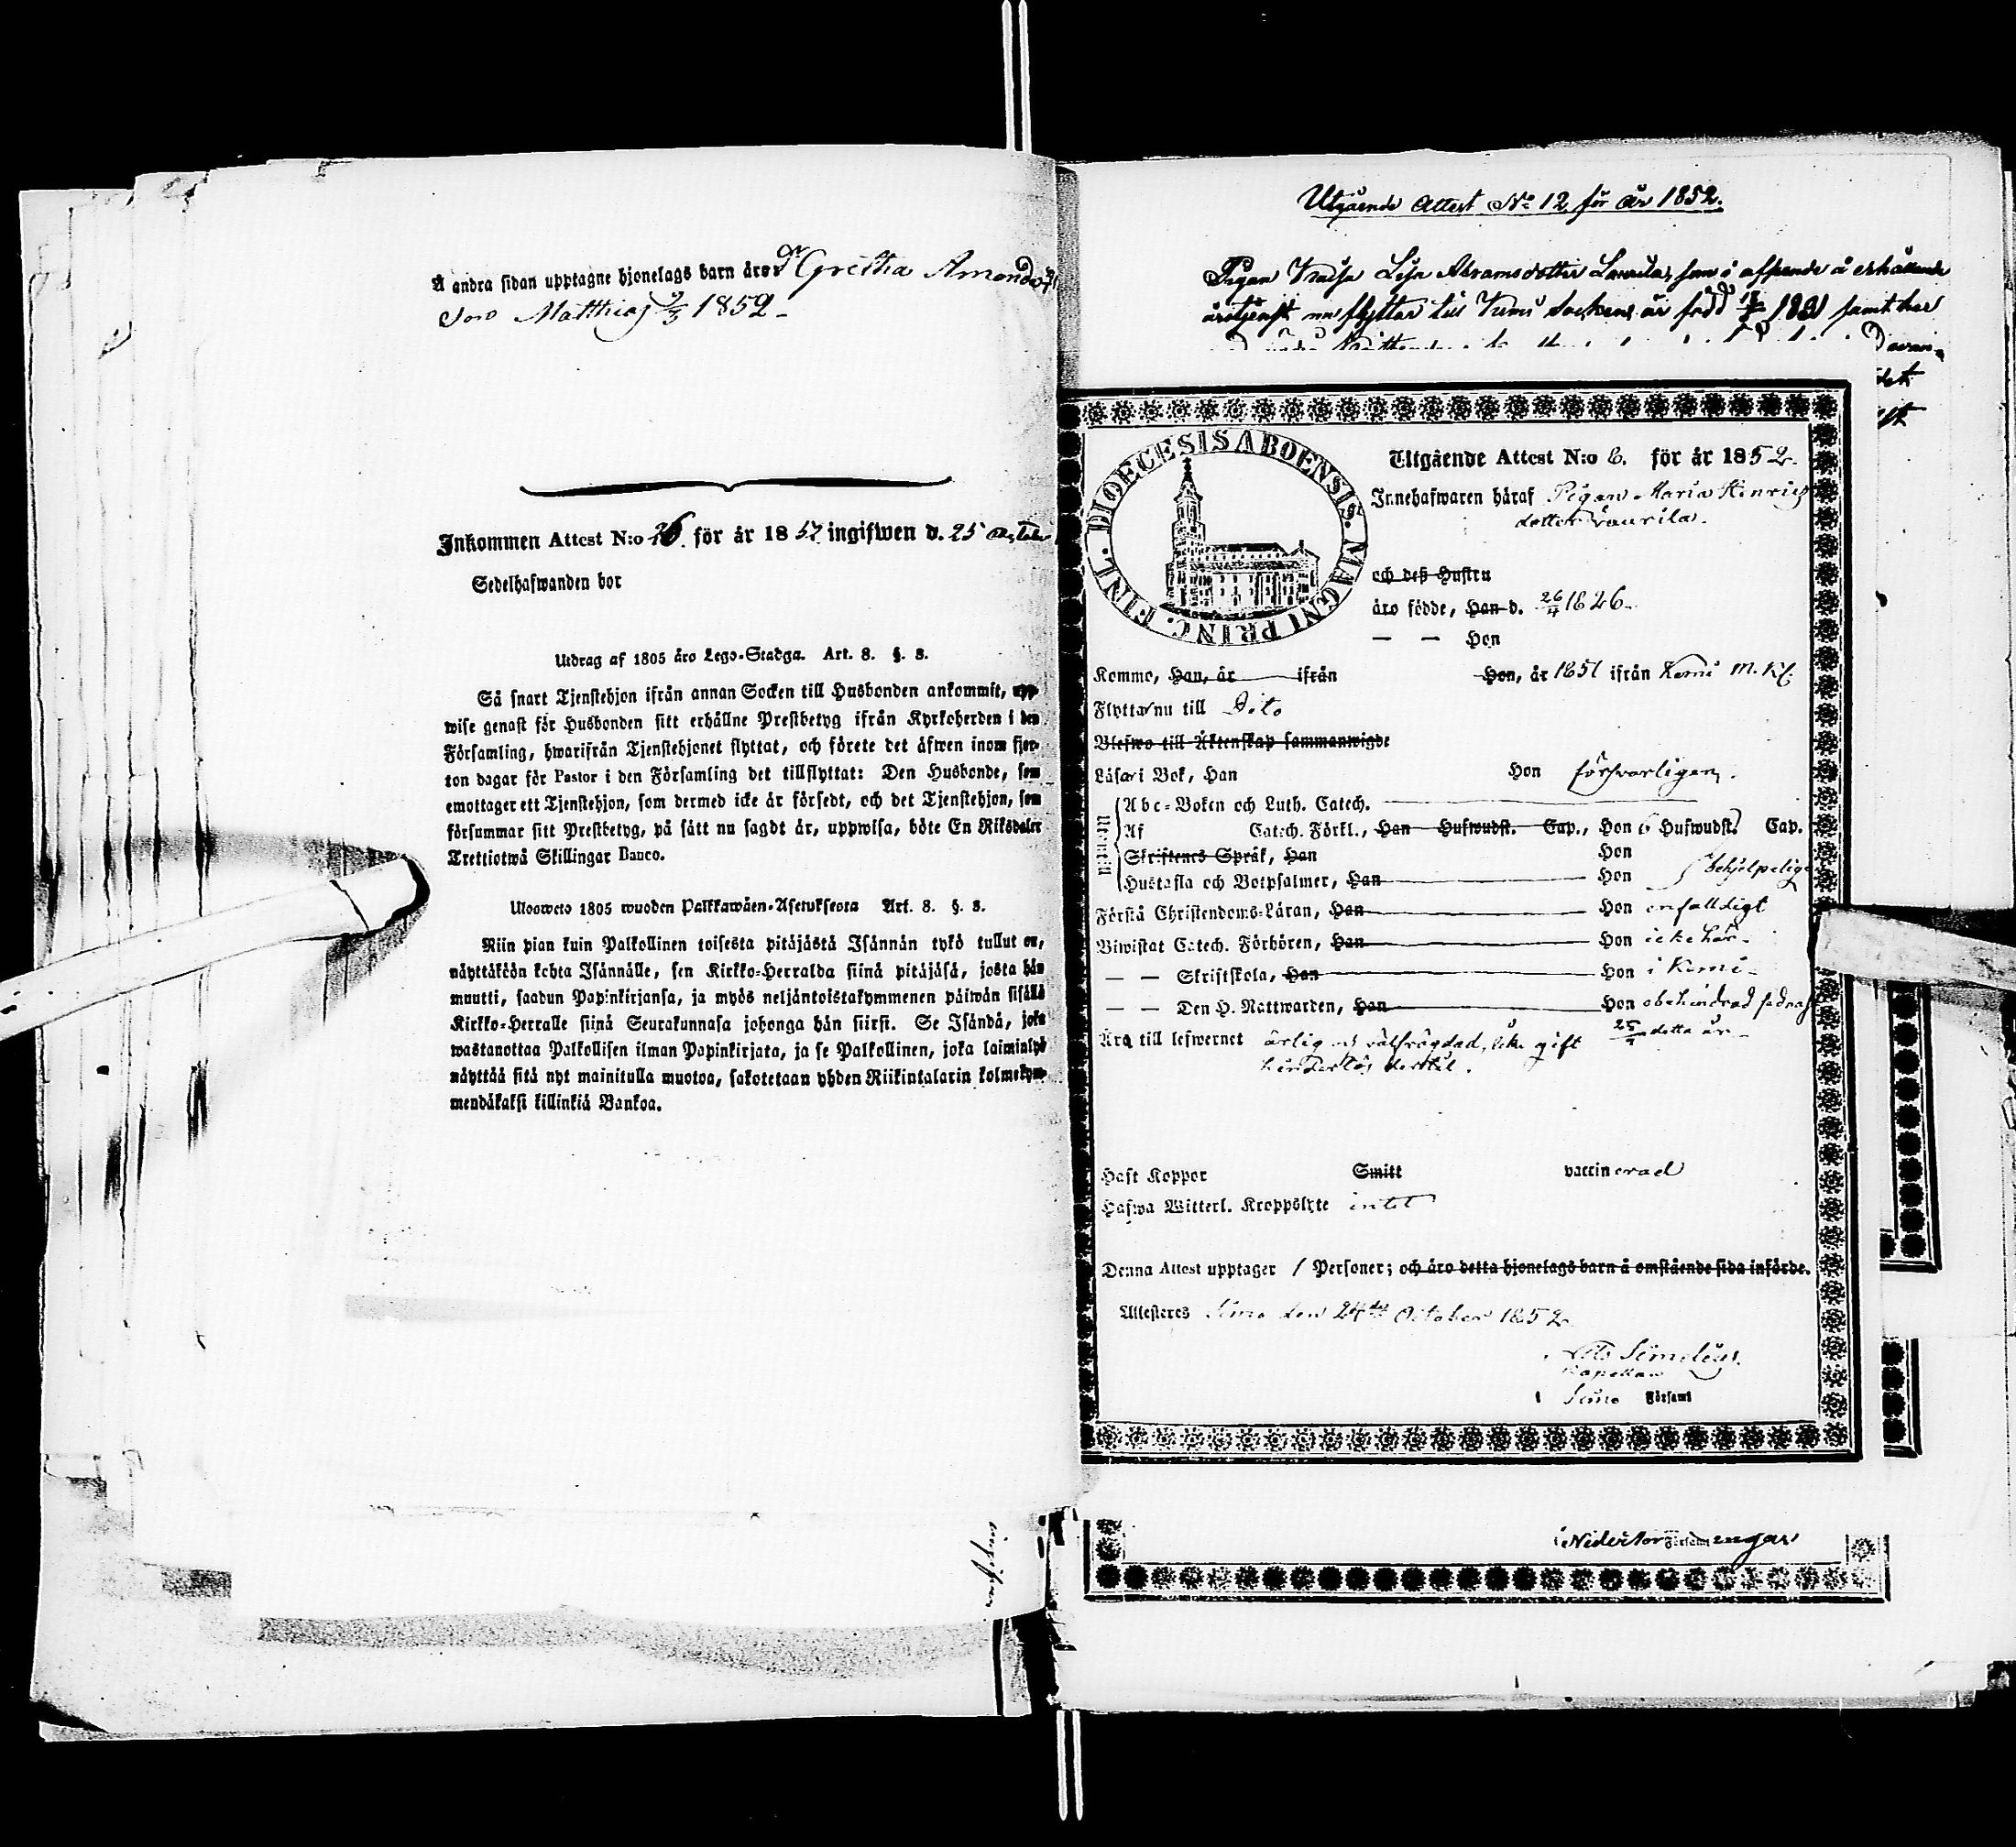 Å andra sidan upptagne hjonelags barn äro: Dr Gretha Amanda
Son Matthias 9/3 1852
Inkommen Attest N:o 26. för år 1852 ingifwen d. 25 October
Sedelhafwanden bor
Utdrag af 1805 års Lego-Stadga. Art. 8. §. 3.
Så snart Tjenstehjon ifrån annan Socken till Husbonden ankommit, upp-
wise genast för Husbonden sitt erhållne Prestbetyg ifrån Kyrkoherden i den
Församling, hwarifrån Tjenstehjonet flyttat, och förete det äfwen inom fjor-
ton dagar för Pastor i den Församling det tillflyttat: Den Husbonde, som
emottager ett Tjenstehjon, som dermed icke är försedt, och det Tjenstehjon, som
försummar sitt Prestbetyg, på sätt nu sagdt är, uppwisa, böte En Riksdaler
Trettiotwå Skillingar Banco.
Ulosweto 1805 wuoden Palkkawäen-Asetuksesta Art. 8. §. 3.
Niin pian kuin Palkollinen toisesta pitäjästä Isännän tykö tullut on,
näyttäköön kohta Isännälle, sen Kirkko-Herralda siinä pitäjäsä, josta hän
muutti, saadun Papinkirjansa, ja myös neljäntoistakymmenen päiwän sisällä
Kirkko-Herralle siinä Seurakunnasa johonga hän siirsi. Se Isändä, joka
wastanottaa Palkollisen ilman Papinkirjata, ja se Palkollinen, joka laiminlyö
näyttää sitä nyt mainitulla muotoa, sakotetaan yhden Riikintalarin kolmekym-
mendäkaksi killinkiä Bankoa.
Utgående Attest No 12 för år 1852.
Pigan Kaisa Lisa Abramsdotter Laurila, som i afseende å erhållande
årstjenst nu flyttar till Kemi Socken, är född 1831 samt har
FINL. DIOECESIS ABOENSIS. MAGNI PRINC.
Utgående Attest N:o 6. för år 1852.
Innehafwaren häraf Pigan Maria Henrics
dotter Laurila.
och deß Hustru
äro födde, Han d. 26/4 1826.
— — Hon
Komne, Han, år ifrån Hon, år 1851 ifrån Kemi M. Kf.
Flytta nu till Dito
Blefwo till Äktenskap sammanwigde
Läsa i Bok, Han Hon försvarligen.
Abc-Boken och Luth. Catech.
Utantill
Af Catech. Förkl., Han Hufwudst. Cap., Hon 6 Hufwudst. Cap.
Skriftenes Språk, Han Hon
Hustafla och Botpsalmer, Han Hon behjelpeligen
Förstå Christendoms-Läran, Han Hon enfalldigt
Biwistat Catech. Förhören, Han Hon icke här.
— — Skriftskola, Han Hon i Kemi
— — Den H. Nattwarden, Han Hon obehindrad sednast
Ära till lefwernet ärlig och välfrägdad, icke gift 25/4 detta år
hinderlös dertill.
Haft Koppor Smitt vaccinerad
Hafwa Witterl. Kroppslyte intet
Denna Attest upptager 1 Personer; och äro detta hjonelags barn å omstående sida införde.
Attesteres Simo den 24de October 1852
Kapellan
i Simo Församl
i Nedertorneå Församlingar